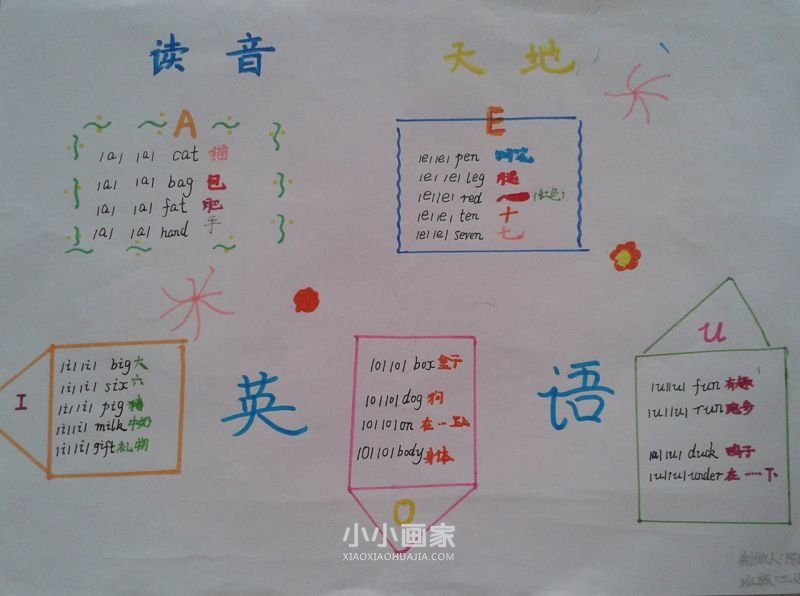 读音 天地
A
|a| |a| cat 猫
|a| |a| bag 包
|a| |a| fat 肥
|a| |a| hand 手
E
|e||e| pen 钢笔
|e| |e| leg 腿
|e||e| red (红色)
|e||e| ten 十
|e||e| seven 七
I
|i||i| big 大
|i||i| six 六
|i||i| pig 猪
|i||i| milk 牛奶
|i||i| gift 礼物
英 语
|o||o| box 盒子
|o||o| dog 狗
|o||o| on 在…上
|o||o| body 身体
O
U
|u||u| fun 有趣
|u||u| run 跑步
|u||u| duck 鸭子
|u||u| under 在……下
小小画家
XIAOXIAOHUAJIA.COM
制做人:
班级: